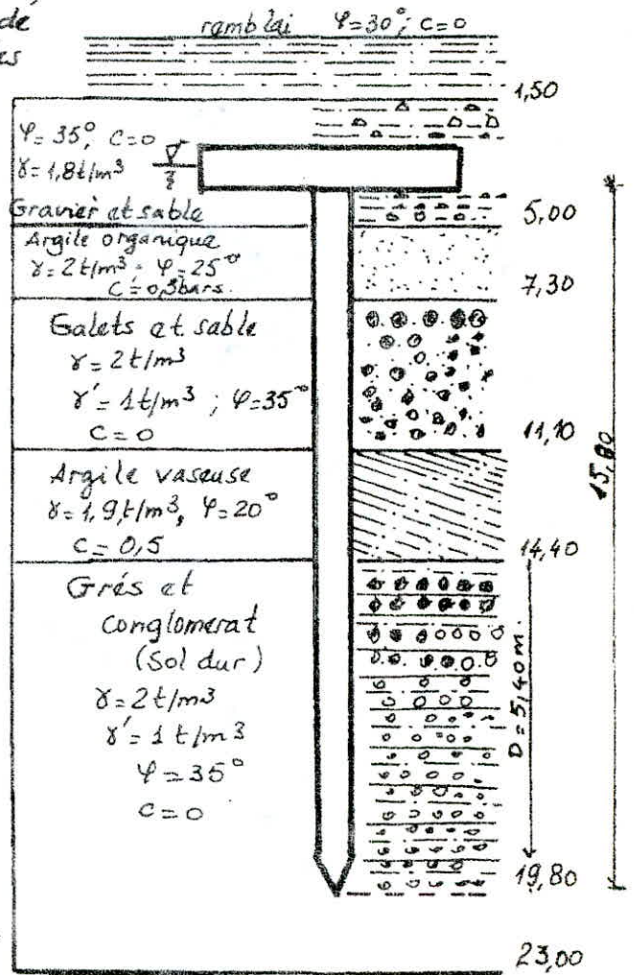 de
es
ramblai φ=30°; C=0
1,50
φ=35°, C=0
γ=1,8t/m³
Gravier et sable
5,00
Argile organique
γ=2t/m³ φ=25°
C=0,3bars.
7,30
Galets et sable
γ=2t/m³
γ'=1t/m³ ; φ=35°
C=0
11,10
Argile vaseuse
γ=1,9t/m³, φ=20°
C=0,5
14,40
15,80
Grés et
conglomerat
(Sol dur)
γ=2t/m³
γ'=1 t/m³
φ=35°
C=0
D=5,40m.
19,80
23,00